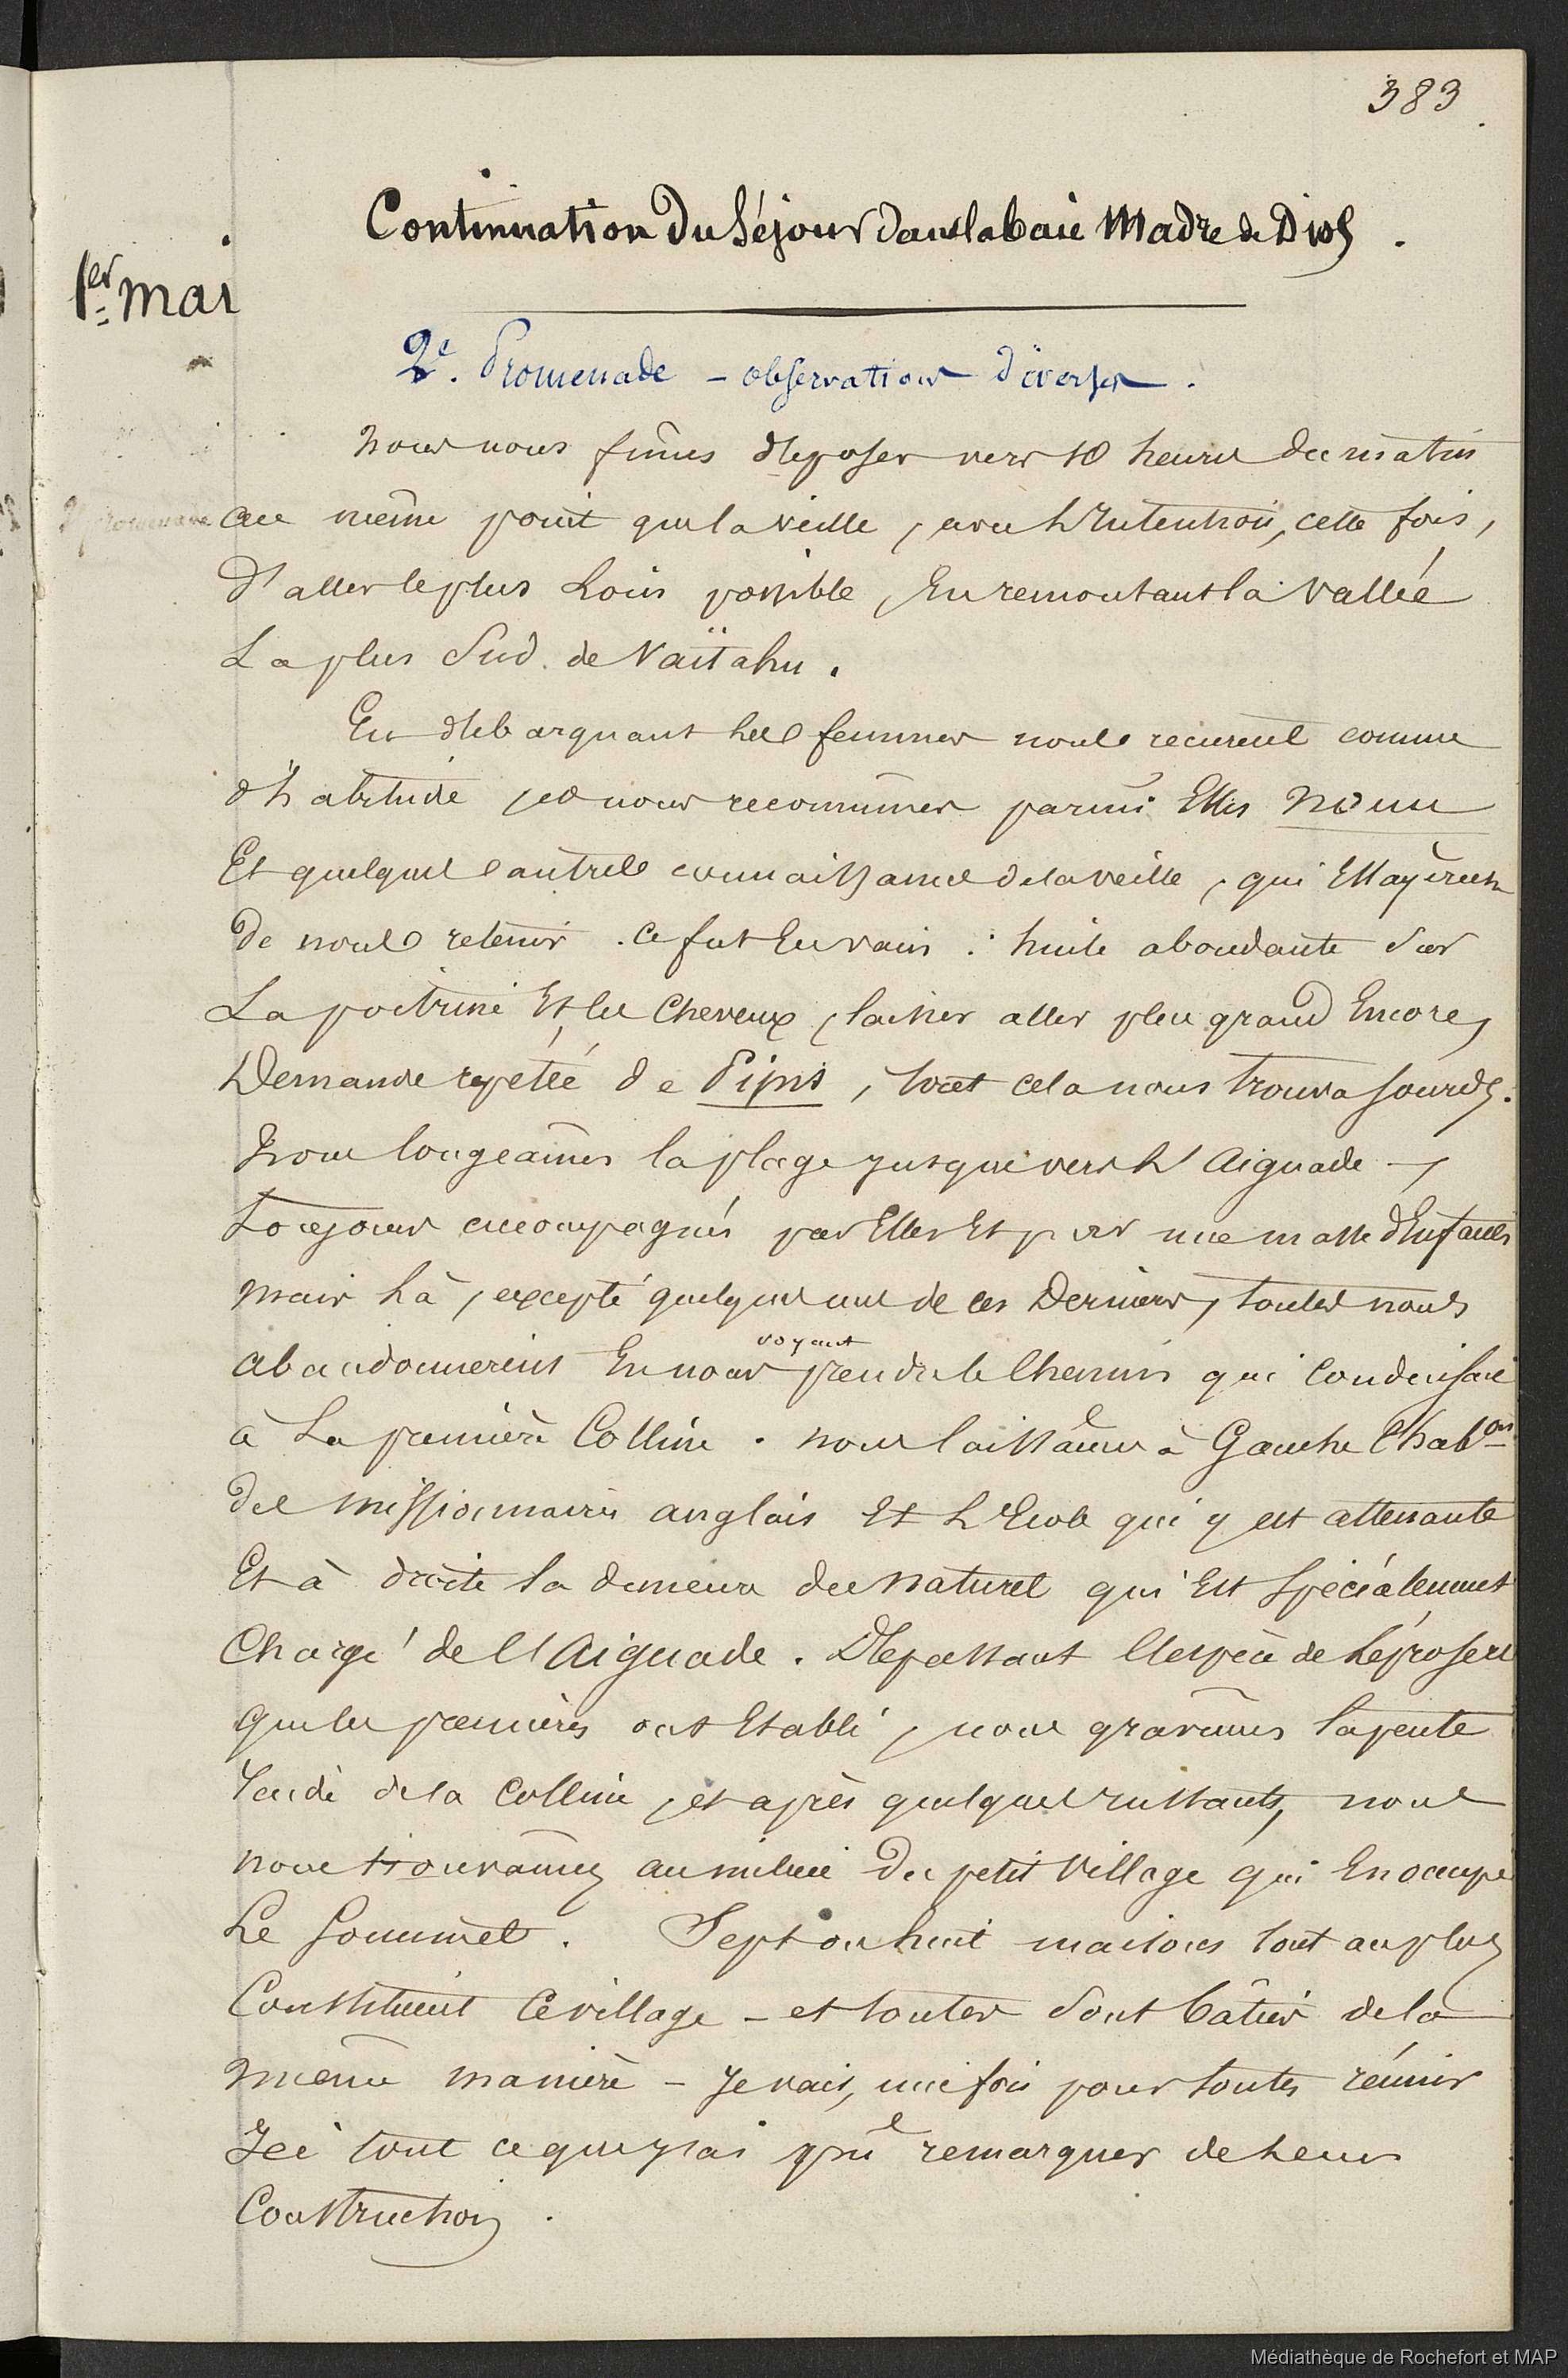 383
Continuation du Séjour dans la baie Madre de Dios.
1er mai
2e. Promenade - observations diverses.
Nous nous fîmes déposer vers 10 heures du matin
2e promenade
au même point que la veille, avec l'Intention, cette fois,
d'aller le plus Loin possible, En remontant la Vallée
La plus Sud. de Vaïtahu.
En débarquant les femmes nous reçurent comme
d'habitude, et nous reconnûmes parmi Elles
Et quelques autres connaissances de la veille, qui Essayèrent
de nous retenir. Ce fut En vain : huile abondante sur
La poitrine Et les Cheveux, laisser aller plus grand Encore,
Demande repétée de Pipis, tout cela nous trouva sourds.
Nous longeâmes la plage jusque vers l'Aiguade -,
toujours accompagnés par Elles Et par une masse d'Enfants
Mais là, excepté quelques uns de ces Derniers, toutes nous
abandonnèrent En nous voyant prendre le Chemin qui Conduisait
à La première Colline. nous laissâmes à Gauche l'hab.on
des missionnaires anglais Et l'Ecole qui y est attenante
Et à droite la demeure du naturel qui Est Spécialement
Chargé de l'Aiguade. Dépassant l'espèce de Léproserie
que les premiers ont Etabli, nous gravîmes la pente
raide de la Colline, et après quelques instants, nous
nous trouvâmes au milieu du petit Village qui En occupe
Le Sommet. Sept ou huit maisons tout au plus
Constituent Ce village - et toutes sont bâties de la
même manière - Je vais, une fois pour toutes réunir
Ici tout ce que j'ai pu remarquer de leur
Construction.
Médiathèque de Rochefort et MAP